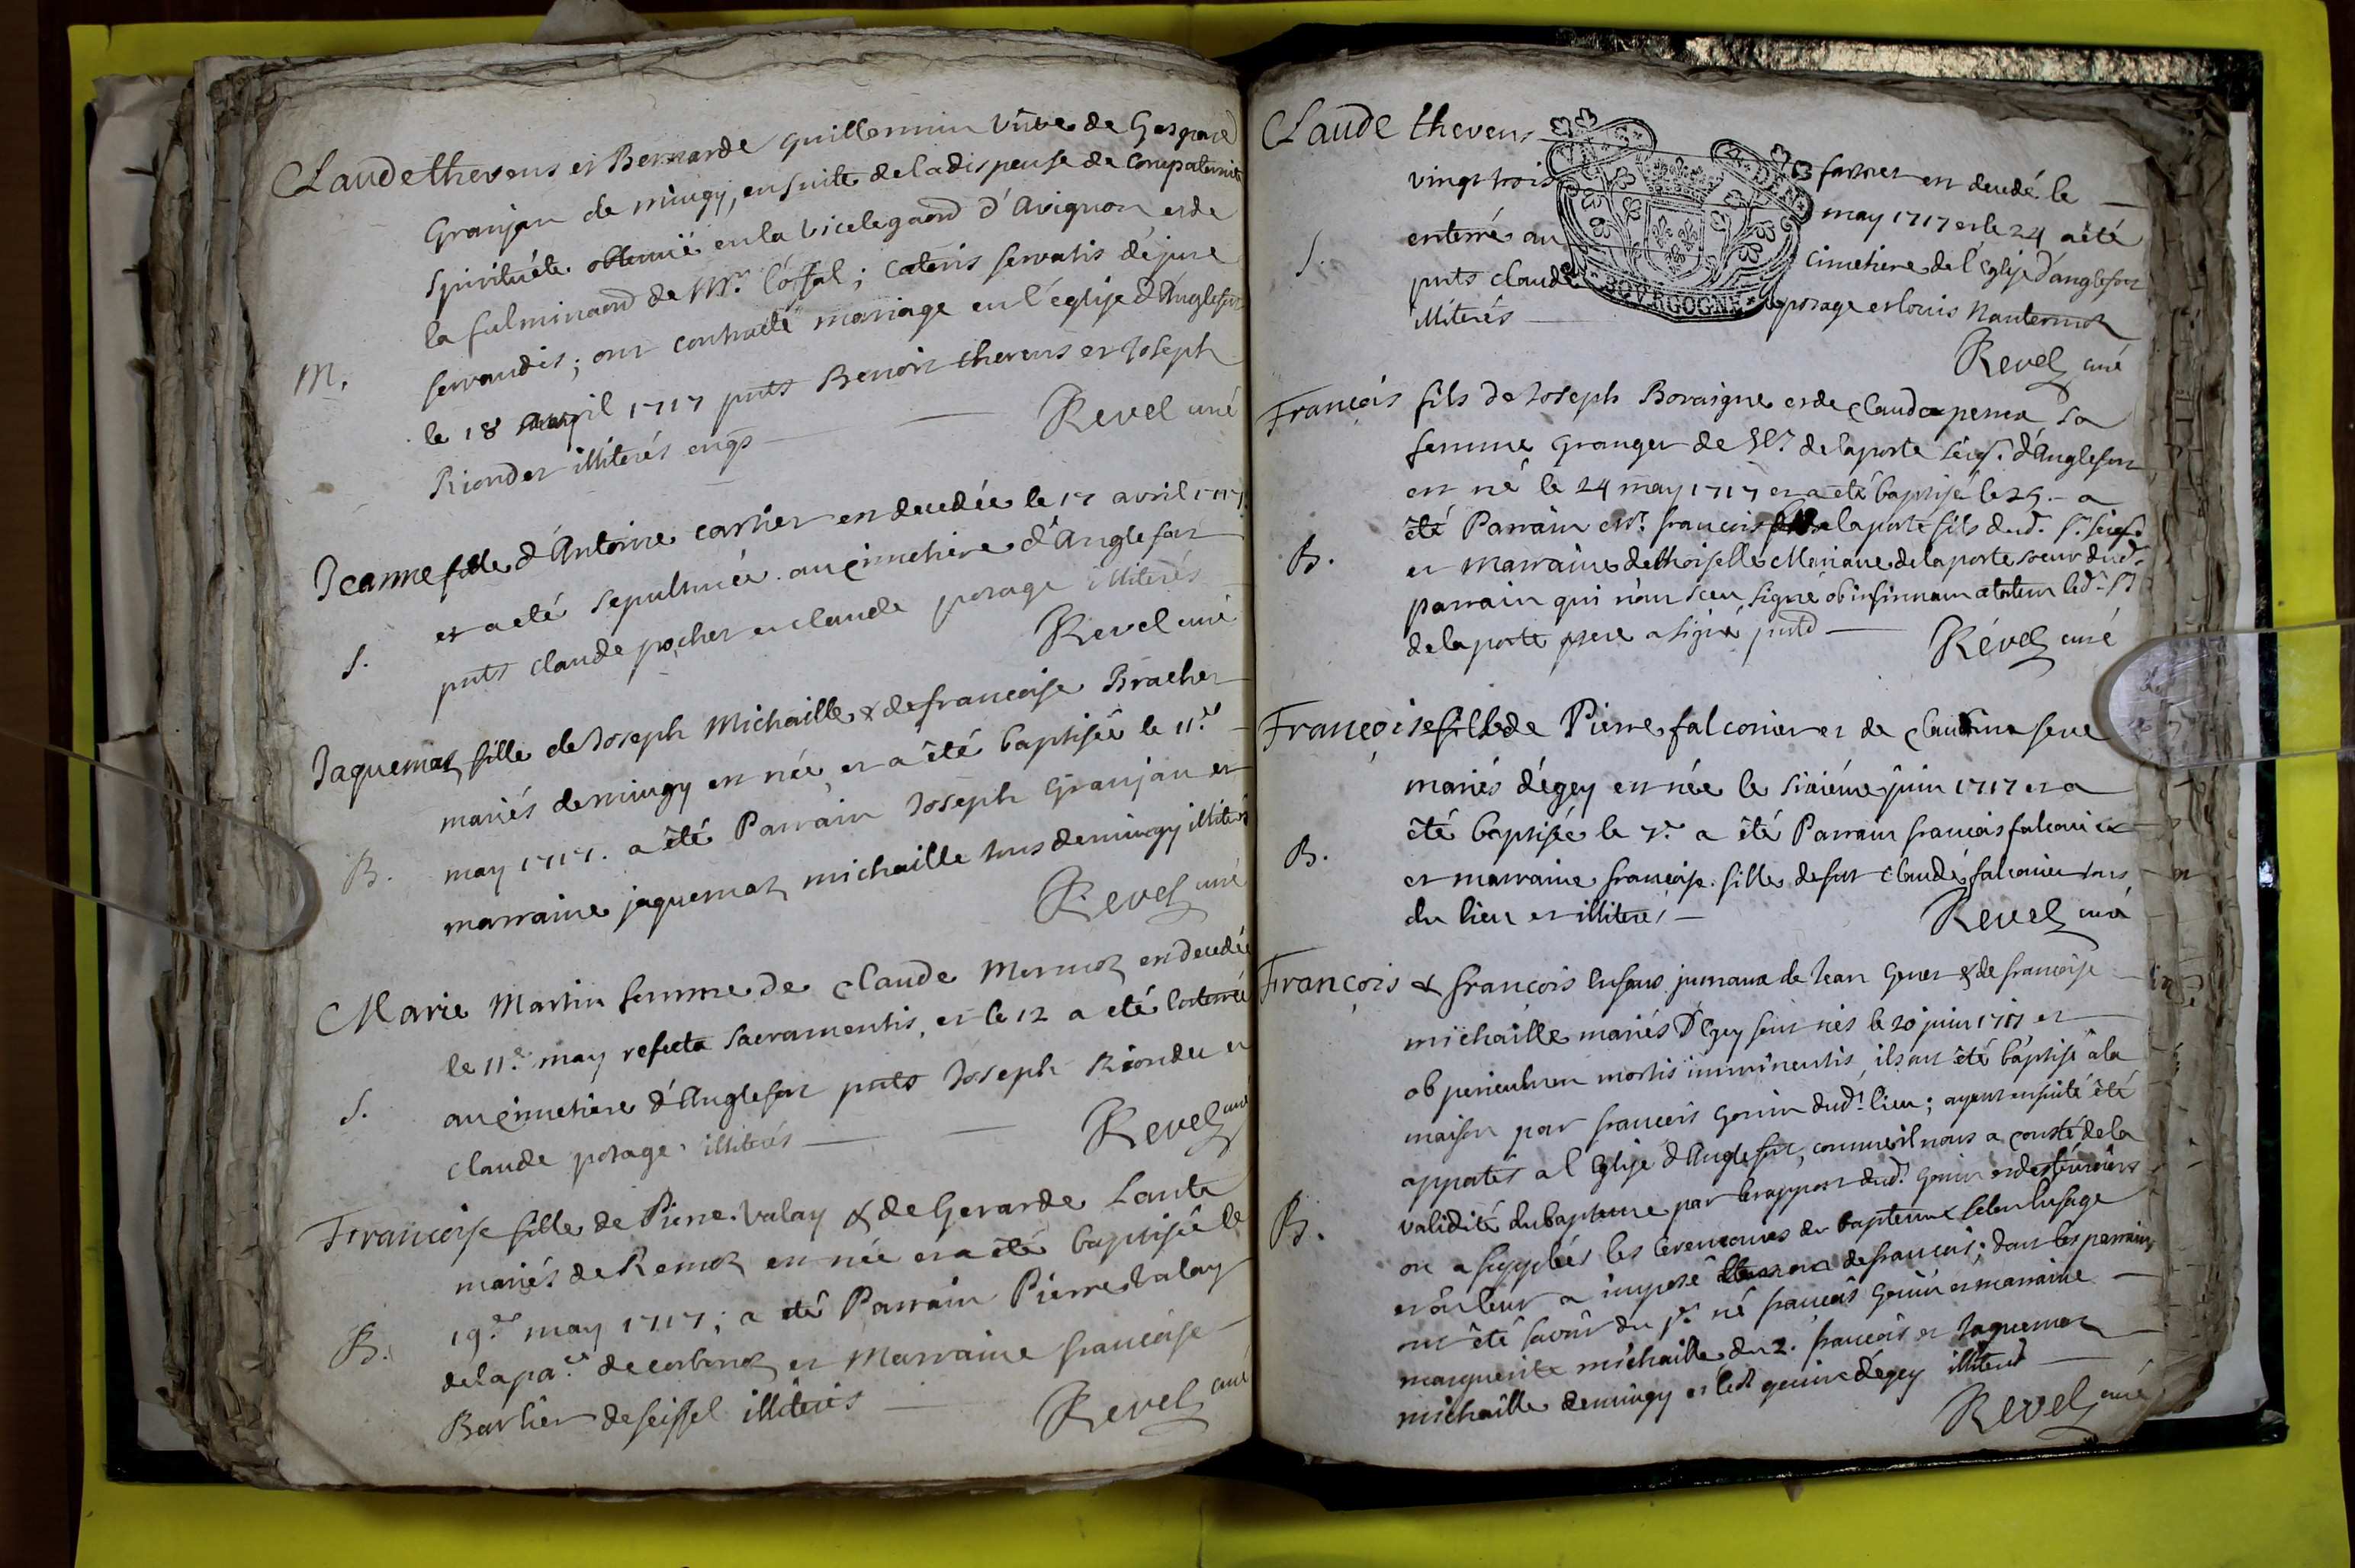 Claude thevens et Bernarde guillermin vüve de Gaspard
Granjan de mingy, ensuite de la dispense de Compaternité
Spirituéle obtenüe en la vicelegaõn d'Avignon et de
la fulminaõn de Mr. l'offal; Cæteris servatis de jure
M.
servandis; ont contracté mariage en l'église d'Anglefort
le 18 avril 1717 pnts Benoit thevens et Joseph
Riondet illiterés engs
Revel curé
Jeanne fille d'Antoine carrier est decedée le 17 avril 1717
et a eté sepulturée au cimetiere d'Anglefort
S.
pnts claude pocher et claude potage illiterés
Revel curé
Jaquemaz fille de Joseph Michaille & de francoise Bracher
mariés de mingy est née et a été baptisée le 11e
B.
may 1717. a été Parrain Joseph Granjan et
marraine jaquemaz michaille tous de mingy illiterés
Revel curé
Marie Martin femme de claude Mermoz est decedée
le 11e may refecta sacramentis, et le 12 a eté Enterrée
S.
au cimetiere d'Anglefort pnts Joseph Riondet et
claude potage illiterés
Revel curé
Francoise fille de Pierre Valay & de Gerarde Lante
mariés de Remoz est née et a été baptisée le
B.
19e may 1717; a eté Parrain Pierre Valay
de la pase de corbonoz et Marraine francoise
Barlier de seissel illiterés
Revel curé
Claude thevens
farnier est decedé le
vingt trois
may 1717 et le 24 a été
S.
enterré au
cimetiere de l'Eglise d'anglefort
pnts claude
potage et louis Nantermoz
BOVRGOGNE
illiterés
Revel curé
François fils de Joseph Boraigne et de clauda perrer sa
femme granger de Sr. de laporte Seigr. d'Anglefort
est né le 24 may 1717 et a eté baptisé le 25. a
été Parrain Mr. francois de laporte fils dud. Sr. seigr.
B.
et marraine demoiselle Mariane de laporte soeur dud.
parrain qui n'ont sceu signé ob infirmam ætatem led. Sr
de laporte pere a signé
Revel curé
Françoise fille de Pierre falconier et de claudina serve
mariés d'égey est née le sixiéme juin 1717 et a
été baptisée le 7e. a été Parrain francois falconier
B.
et marraine francoise fille de fut claude falconier tous
du lieu et illiterés
Revel curé
François & françois Enfans jumaux de Jean Gener & de francoise
michaille mariés d'Egey sont nés le 20 juin 1717 et
ob periculum mortis imminentis, ils ont été baptisé a la
maison par francois Genin dud. lieu; ayent ensuite été
appotés a l'Eglise d'Anglefort, comme il nous a consté de la
B.
validité du baptême par le rapport dud. Genin et des temoins
on a suppléés les ceremonies du baptême selon lusage
et on leur a imposé le nom de francois; dont les parrains
ont été savoir du 1er. né francois Genin et marraine
marguerite michaille du 2. francois et Jaquemaz
michaille de mingy et led. genin d'égey illiterés
Revel curé